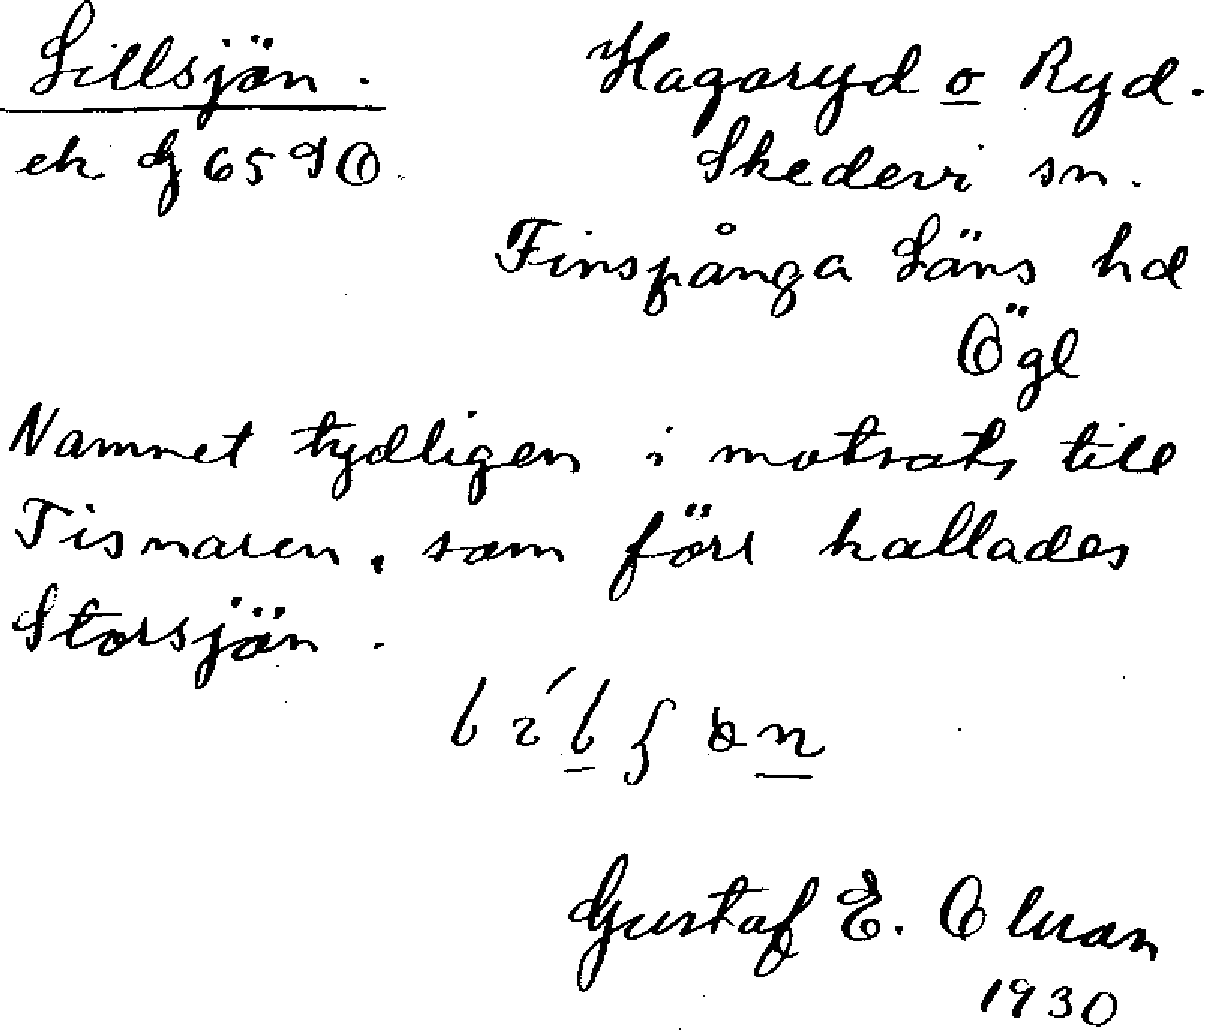 Lillsjön.
Hagaryd o Ryd.
ek G 65 SO
Skedevi sn.
Finspånga Läns hd
Ögl
Namnet tydligen i motsats till
Tisnaren, som förr kallades
Storsjön.
Gustaf E.
1930